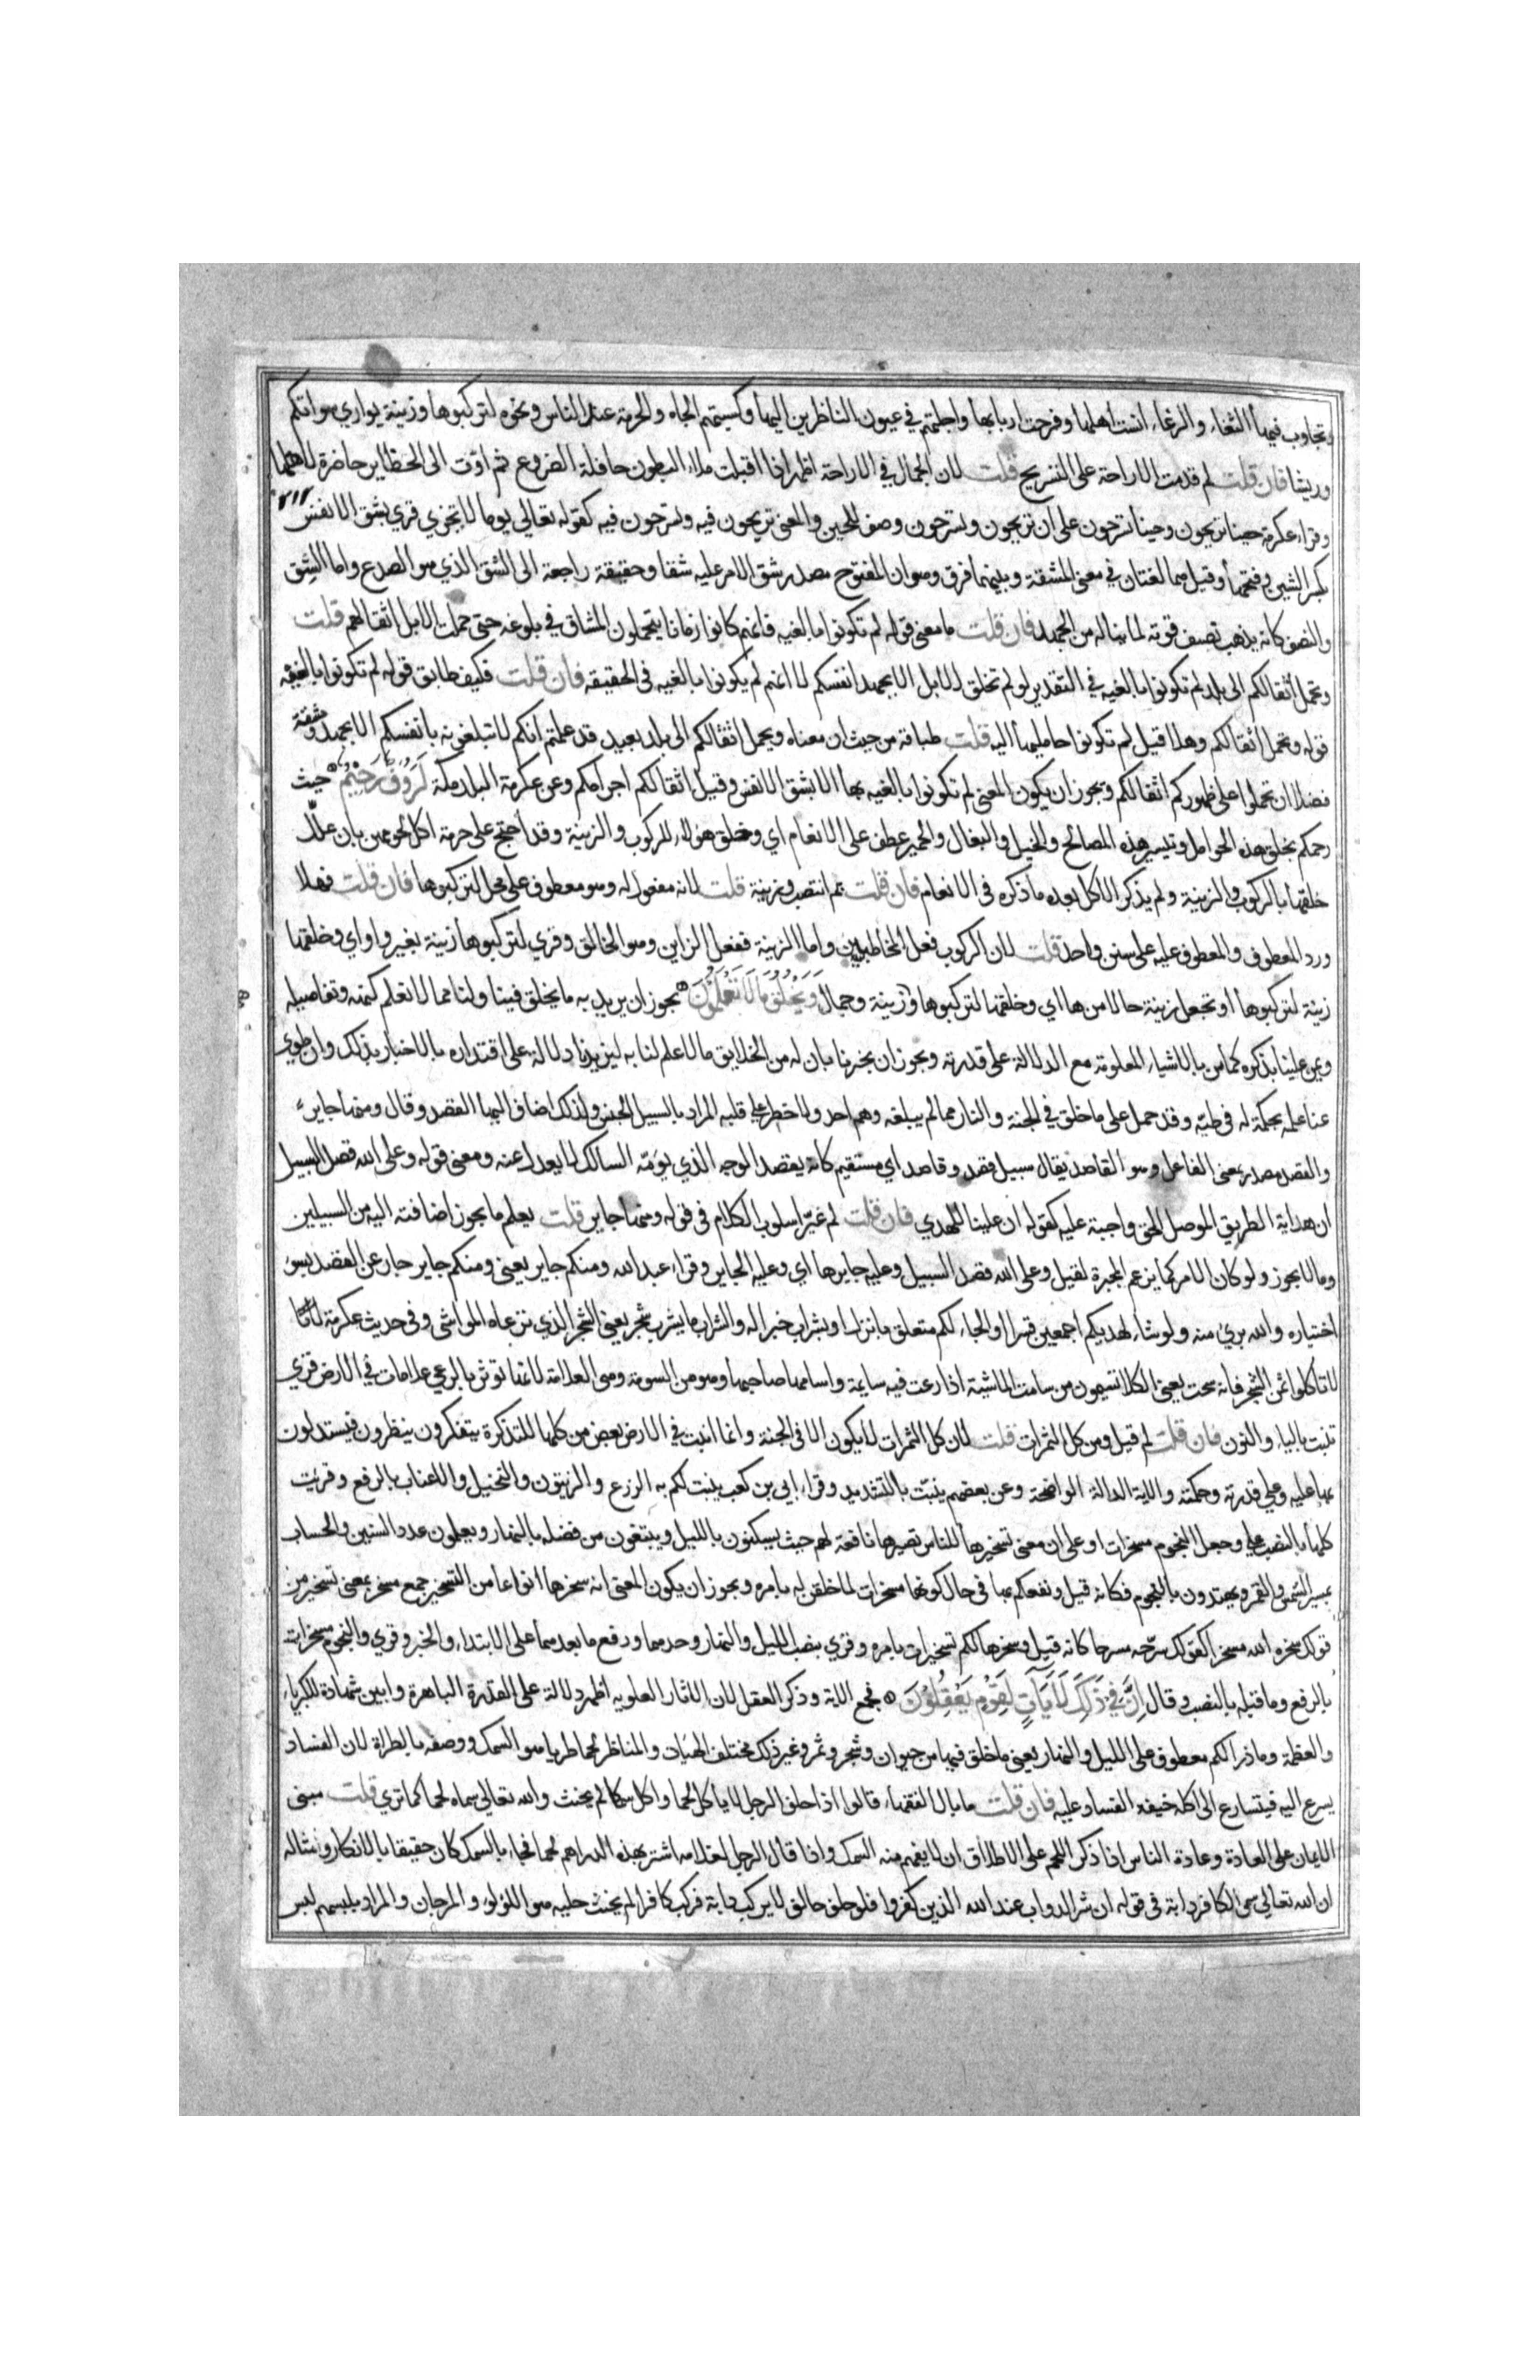 وتجاوب فيها الثغاء والرغاء انست اهلها وفرحت اربابها واجلتهم في عيون الناظرين اليها وكسبتهم الجاه والحرمة عند الناس ونحوه لتركبوها وزينة يواري سواتكم
وريشا فان قلت لم قدمت الاراحة على التسريح قلت لان الجمال في الاراحة اظهر اذا اقبلت ملاء البطون حافلة الضروع ثم اوت الى الحظاير حاضرة لاهلها
وقراء عكرمة حينا تريحون وحينا تسرحون على ان تريحون وتسرحون وصف للحين والمعنى تريحون فيه وتسرحون فيه كقوله تعالي يوما لا يجزي قري بشق الانفس
بكسر الشين وفتحها وقيل هما لغتان في معنى المشقة وبينهما فرق وهو ان المفتوح مصدر شق الامر عليه شقا وحقيقته راجعة الى الشق الذي هو الصدع واما الشق
والنصف كانه يذهب نصف قوته لما يناله من الجهد فان قلت ما معنى قوله لم تكونوا بالغيه فانهم كانوا زمانا يتحملون المشاق في بلوغه حتى حملت الابل اثقالهم قلت
وتحمل اثقالكم الى بلد لم تكونوا بالغيه في التقدير لو لم تخلق الابل الا بجهد انفسكم لا انهم لم يكونوا بالغيه في الحقيقه فان قلت فكيف طابق قوله لم تكونوا بالغيه
قوله وتحمل اثقالكم وهلا قيل لم تكونوا حامليها اليه قلت طباقه من حيث ان معناه ويحمل اثقالكم الى بلد بعيد قد علمتم انكم لا تبلغونه بانفسكم الا بجهد ومشقة
فضلا ان تحملوا على ظهوركم اثقالكم ويجوز ان يكون المعنى لم تكونوا بالغيه بها الا بشق الانفس وقيل اثقالكم اجرامكم وعن عكرمة البلد مكة لَرَوُفٌ رَحِيْمٌ حيث
رحمكم بخلق هذه الحوامل وتيسير هذه المصالح والخيل والبغال والحمير عطف على الانعام اي وخلق هؤلاء للركوب والزينة وقد احتج على حرمة اكل لحومهن بان علل
خلقها بالركوب والزينة ولم يذكر الاكل بعد ما ذكره في الانعام فان قلت لم انتصب وزينة قلت لانه مفعول له وهو معطوف على محل لتركبوها فان قلت فهلا
ورد المعطوف والمعطوف عليه على سنن واحد قلت لان الركوب فعل المخاطبين واما الزينة ففعل الزاين وهو الخالق وقري لتركبوها زينة بغير واو اي وخلقها
زينة لتركبوها او تجعل زينة حالا من ها اي وخلقها لتركبوها وزينة وجمال وَيَخْلُقُ مَا لَا تَعْلَمُوْنَ يجوز ان يريد به ما يخلق فينا ولنا مما لا نعلم كنهه وتفاصيله
ويمن علينا بذكره كما من بالاشياء المعلومة مع الدلالة على قدرته ويجوز ان يخبرنا بان له من الخلايق ما لا علم لنا به ليزيدنا دلالة على اقتداره بالاخبار بذلك وان طوي
عنا علمه بحكمة له في طيّه وقد حمل على ما خلق في الجنة والنار مما لم يبلغه وهم احد ولا خطر على قلبه المراد بالسبيل الجنس ولذلك اضاف اليها القصد وقال ومنها جاير
والقصد مصدر بمعنى الفاعل وهو القاصد يقال سبيل قصد وقاصد اي مستقيم كانه يقصد الوجه الذي يؤمّه السالك لا يعدل عنه ومعنى قوله وعلى الله قصد السبيل
ان هداية الطريق الموصل الحق واجبة عليه كقوله ان علينا للهدي فان قلت لم غيّر اسلوب الكلام في قوله ومنها جاير قلت يعلم ما يجوز اضافته اليه من السبيلين
وما لا يجوز ولو كان الامر كما يزعم المجبرة لقيل وعلى الله قصد السبيل وعليه جايرها اي وعليه الجاير وقراء عبد الله ومنكم جاير يعني ومنكم جاير جار عن القصد بسوء
اختياره والله بريء منه ولو شاء لهديكم اجمعين قسرا والجاء لكم متعلق بانزل او بشراب خبرا له والشراب ما يشرب شجر يعني الشجر الذي ترعاه المواشي وفي حديث عكرمة
لا تاكلوا ثمن الشجر فانه سحت يعني الكلا تسيمون من سامت الماشية اذا رعت فيه سايمة واسامها صاحبها وهو من السومة وهي العلامة لانها توثر بالرعي علامات في الارض قري
تنبت بالياء والنون فان قلت لم قيل ومن كل الثمرات قلت لان كل الثمرات لا يكون الا في الجنة وانما انبت في الارض بعض من كلها للتذكرة يتفكرون ينظرون فيستدلون
بها عليه وعلي قدرته وحكمته والاية الدالة الواضحة وعن بعضهم ينبّت بالتشديد وقراء ابي بن كعب ينبت لكم به الزرع والزيتون والنخيل والاعناب بالرفع وقريت
كلها بالنصب على وجعل النجوم مسخرات او على ان معنى تسخيرها للناس تصييرها نافعة لهم حيث يسكنون بالليل ويبتغون من فضله بالنهار ويعلمون عدد السنين والحساب
بمسير الشمس والقمر ويهتدون بالنجوم فكانه قيل ونفعكم بها في حال كونها مسخرات لما خلقن له بامره ويجوز ان يكون المعنى انه سخرها انواعا من التسخير جمع مسخر بمعنى تسخير من
قولك سخره الله مسخرا كقولك سرّحه مسرحا كانه قيل وسخرها لكم تسخيرات بامره وقري بنصب الليل والنهار وحدهما ورفع ما بعدهما على الابتداء والخبر وقري والنجوم مسخرات
بالرفع وما قبله بالنصب وقال اِنَّ فِيْ ذٰلِكَ لَاٰيَاتٍ لِقَوْمٍ يَعْقِلُوْنَ فجمع الاية وذكر العقل لان الاثار العلويه اظهر دلالة على القدرة الباهرة وابين شهادة للكبرياء
والعظمة وما ذرا لكم معطوف على الليل والنهار يعني ما خلق فيها من حيوان وشجر وثمر وغير ذلك مختلف الهيات والمناظر لحما طريا هو السمك ووصفه بالطراة لان الفساد
يسرع اليه فيتسارع الى اكله خيفة الفساد عليه فان قلت ما بال الفقهاء قالوا اذا حلف الرجل لا ياكل لحما واكل سمكا لم يحنث والله تعالي سماه لحما كما تري قلت مبنى
الايمان على العادة وعادة الناس اذا ذكر اللحم على الاطلاق ان لا يفهم منه السمك واذا قال الرجل لغلامه اشتر بهذه الدراهم لحما فجاء بالسمك كان حقيقا بالانكار ومثاله
ان الله تعالي سمى الكافر دابة في قوله ان شر الدواب عند الله الذين كفروا فلو حلف حالف لا يركب دابة فركب كافرا لم يحنث حليه هو اللؤلؤ والمرجان والمراد بلبسهم لبس